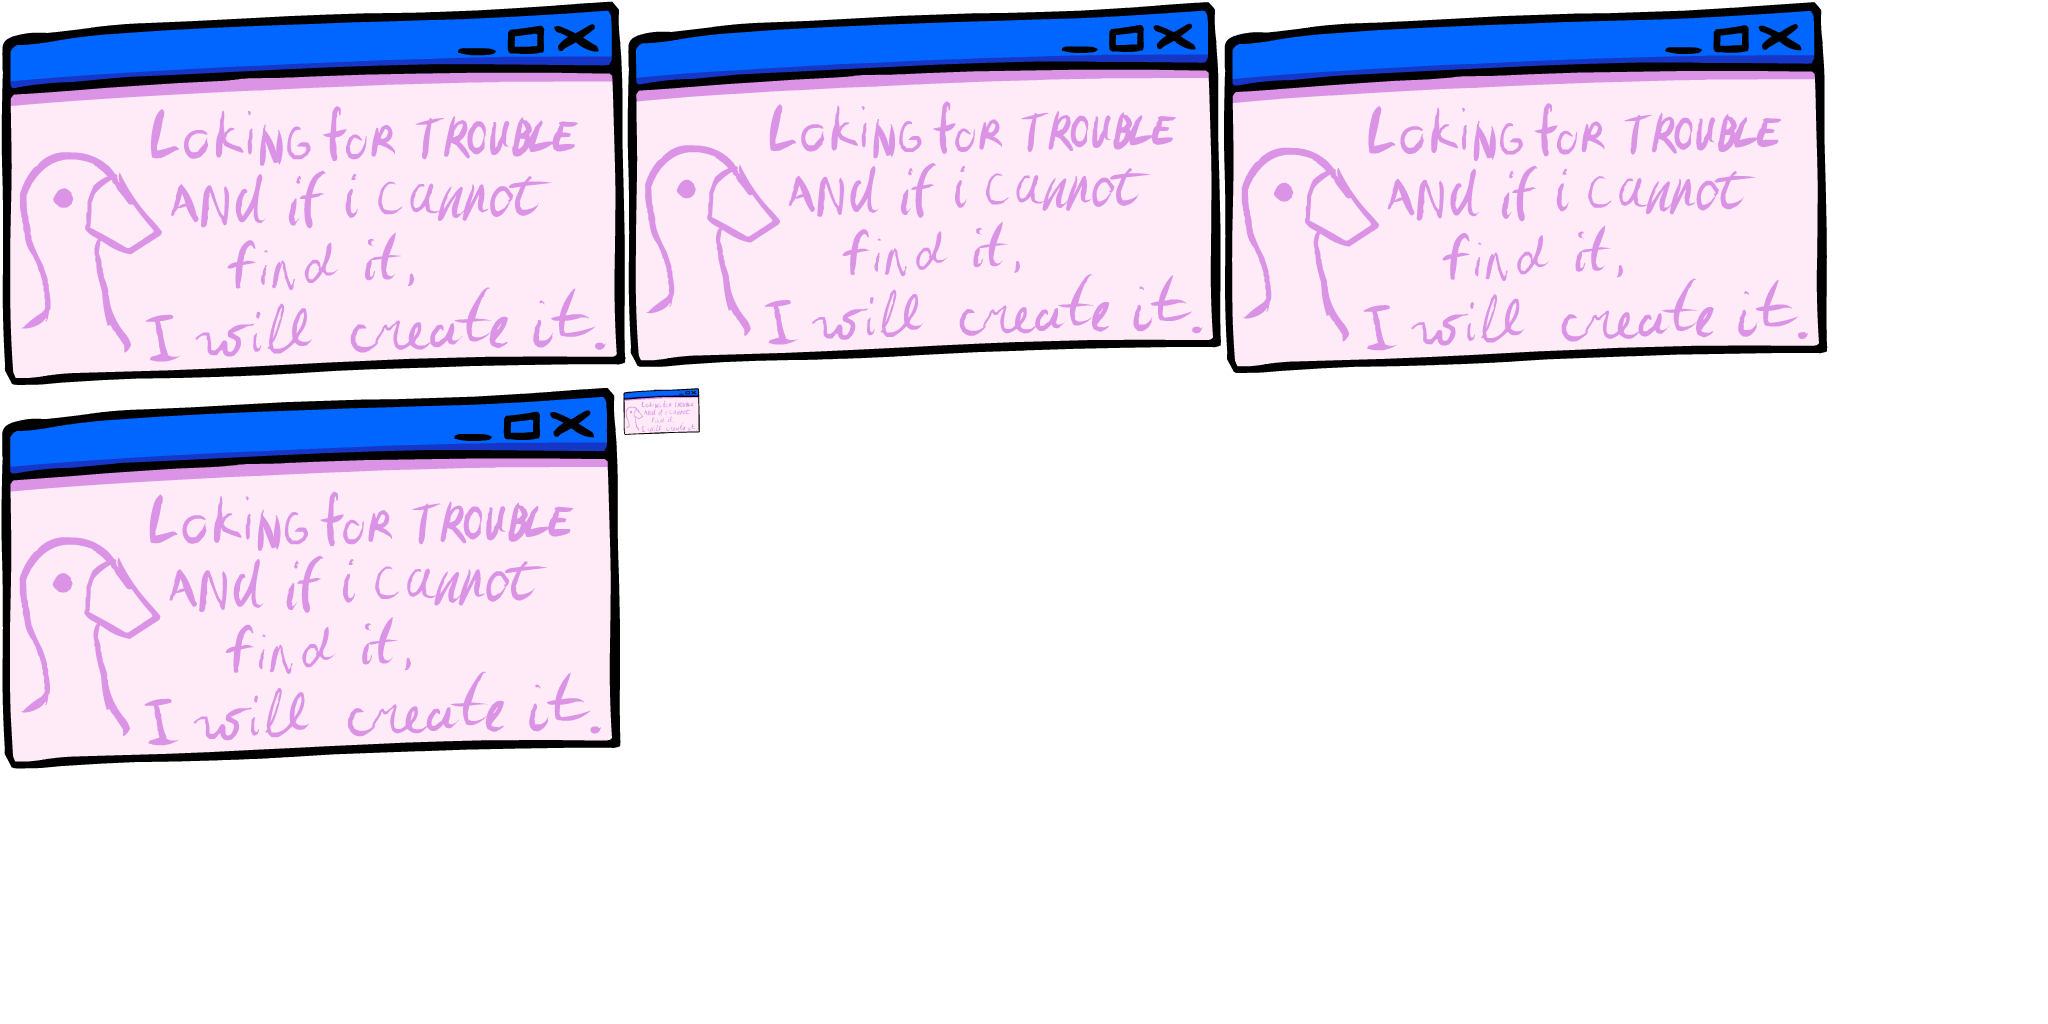 LoKiNG foR TROUBLE
AND if i cannot
find it,
I will create it.
LoKiNG foR TROUBLE
AND if i cannot
find it,
I will create it.
LoKiNG foR TROUBLE
AND if i cannot
find it,
I will create it.
LoKiNG foR TROUBLE
AND if i cannot
find it,
I will create it.
LoKiNG foR TROUBLE
AND if i cannot
find it,
I will create it.